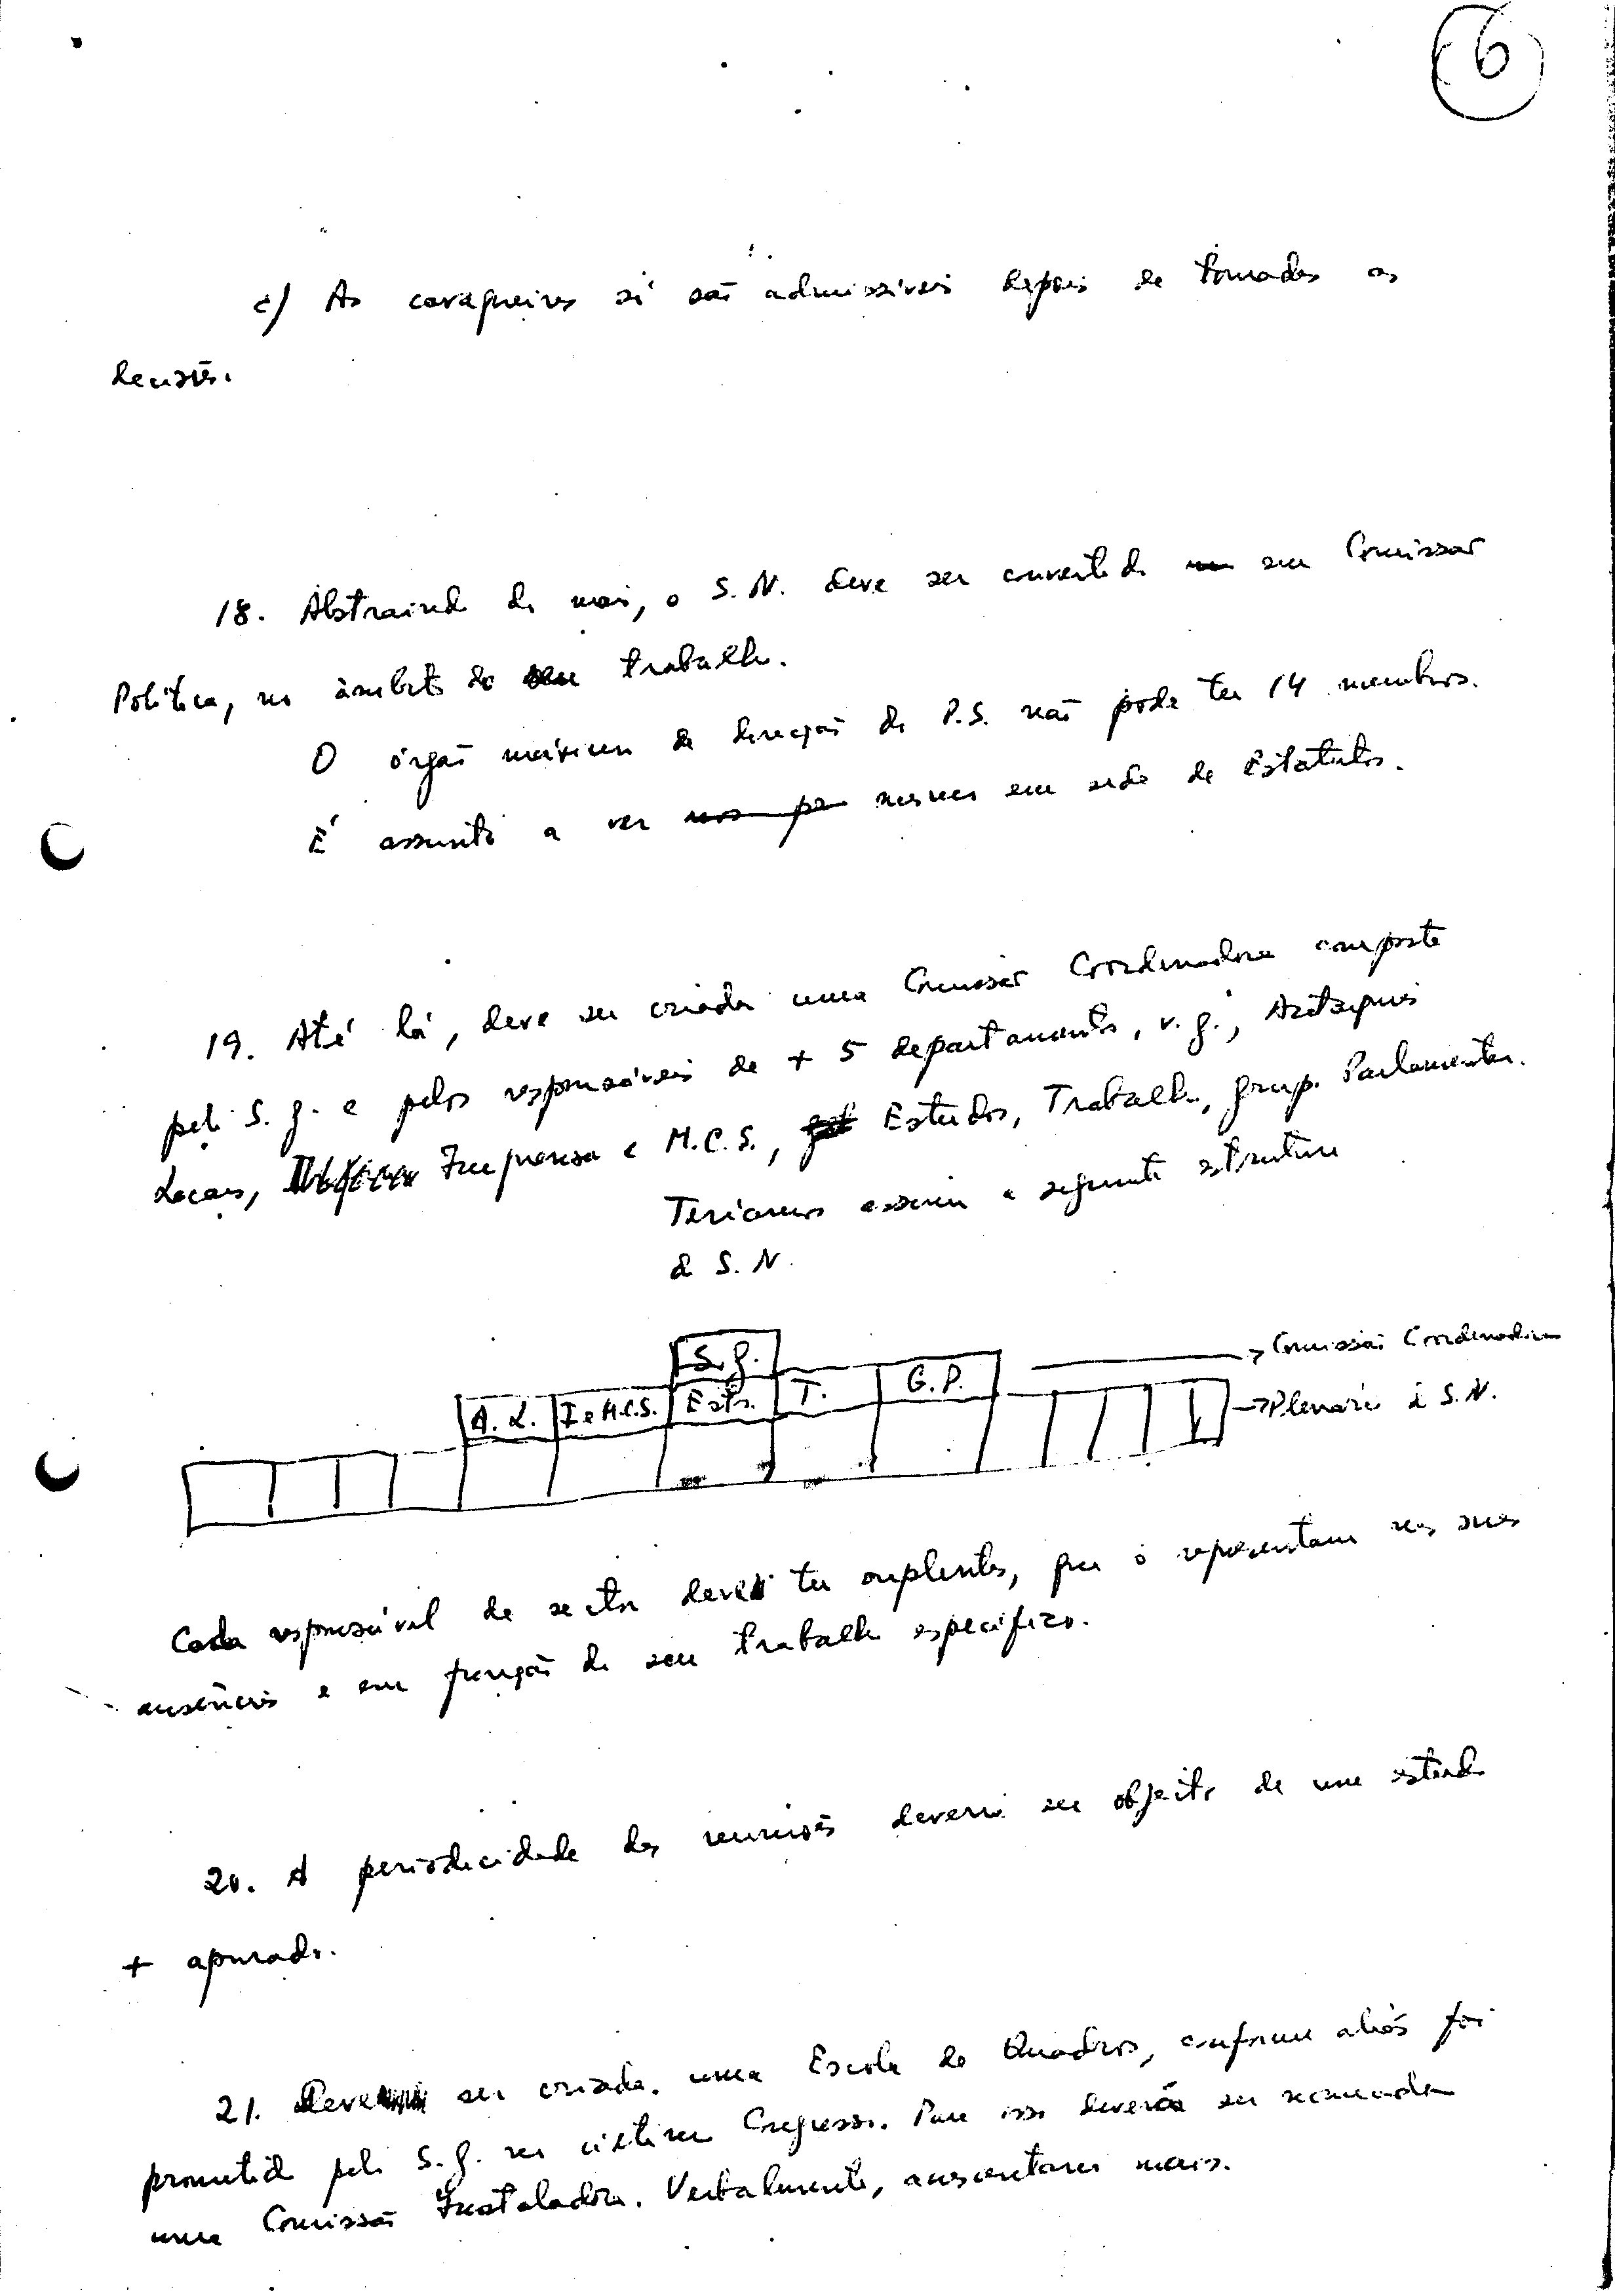 6
c) As cavaqueiras só são admissíveis depois de tomadas as
decisões.
18. Abstraindo do mais, o S. N. deve ser convertido em Comissão
Política, no âmbito do seu trabalho.
O órgão máximo de direcção do P.S. não pode ter 14 membros.
É assunto a ver mesmo em sede de Estatutos.
19. Até lá, deve ser criada uma Comissão Coordenadora composta
pelo S. G. e pelos responsáveis de + 5 departamentos, v. g., Autarquias
Locais, Imprensa e M.C.S., Estudos, Trabalho, Grupo Parlamentar.
Teríamos assim a seguinte estrutura
do S. N.
S. G.
A. L. I e M.C.S. Ests. T. G. P.
→ Comissão Coordenadora
→ Plenário do S. N.
Cada responsável de sector deve ter suplentes, que o representam nas suas
ausências e em função do seu trabalho específico.
20. A periodicidade das reuniões deverá ser objecto de um estudo
+ apurado.
21. Deve ser criada uma Escola de Quadros, conforme aliás foi
prometido pelo S. G. no último Congresso. Para isso deverá ser nomeada
uma Comissão Instaladora. Verbalmente, acrescentarei mais.